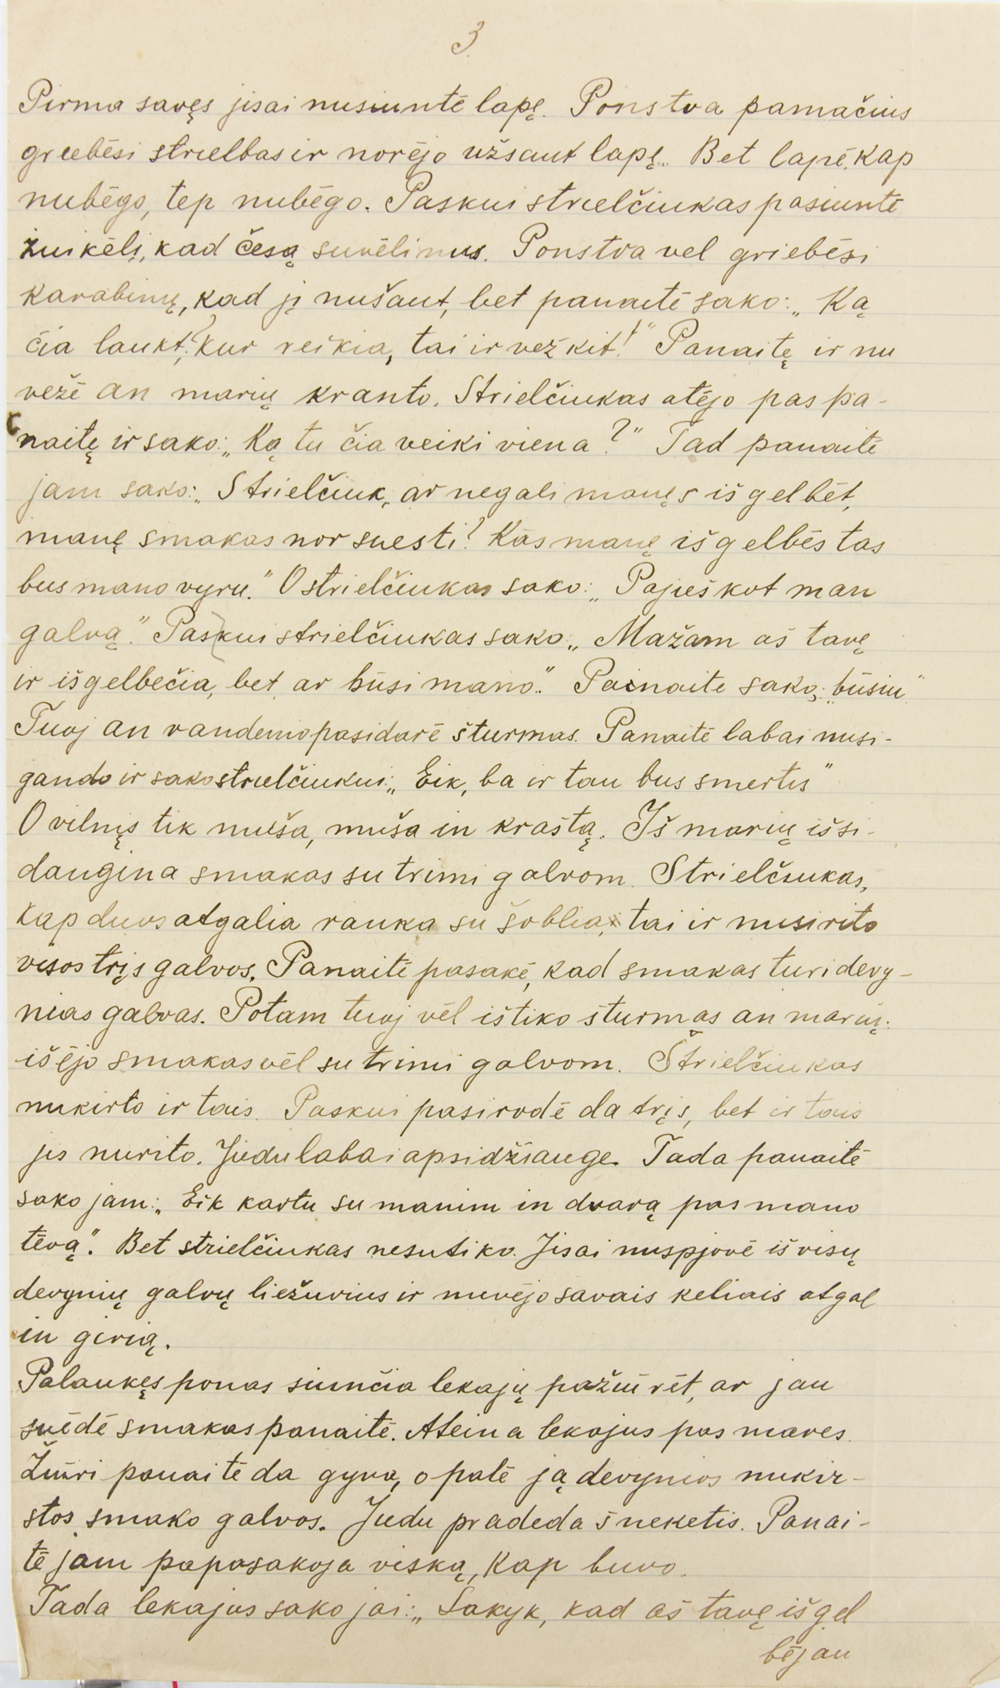 3
Pirma savęs jisai nusiuntė lapę. Ponstva pamačius
griebėsi strielbas ir norėjo užšaut lapę. Bet lapė, kap
nubėgo, tep nubėgo. Paskui strielčiukas pasiuntė
zuikėlį, kad česą suvėlinus. Ponstva vel griebėsi
karabinų, kad jį nušaut, bet panaitė sako: „Ką
čia laukt, kur reikia, tai ir vežkit!" Panaitę ir nu
vežė an marių kranto. Strielčiukas atėjo pas pa-
naitę ir sako: „Ką tu čia veiki viena?" Tad panaitė
jam sako: „Strielčiuk, ar negali manęs išgelbėt,
manę smakas nor suesti? Kas manę išgelbės tas
bus mano vyru." O strielčiukas sako: „Pajieškot man
galvą." Paskui strielčiukas sako „Mažam aš tavę
ir išgelbečia, bet ar būsi mano." Painaite sako: „būsiu"
Tuoj an vandenio pasidarė šturmas. Panaitė labai nusi-
gando ir sako strielčiukui: „Eik, ba ir tau bus smertis"
O vilnįs tik muša, muša in kraštą. Iš marių išsi-
daugina smakas su trimi galvom. Strielčiukas,
kap duos atgalia ranka su šoblia, tai ir nusirito
visos trįs galvos. Panaitė pasakė, kad smakas turi devy-
nias galvas. Potam tuoj vėl ištiko šturmas an marių:
išėjo smakas vėl su trimi galvom. Strielčiukas
nukirto ir tais. Paskui pasirodė da trįs, bet ir tais
jis nurito. Jiedu labai apsidžiauge. Tada panaitė
sako jam: „Eik kartu su manim in dvarą pas mano
tėvą". Bet strielčiukas nesutiko. Jisai nuspjovė iš visų
devynių galvų liežuvius ir nuvėjo savais keliais atgal
in girią.
Palaukęs ponas siunčia lekajų pažiūrėt, ar jau
suėdė smakas panaitė. Ateina lekajus pas mares.
Žiūri panaitė da gyva, o palė ją devynios nukir-
stos smako galvos. Judu pradeda šneketis. Panai-
tė jam papasakoja viską, kap buvo.
Tada lekajus sako jai: „Sakyk, kad aš tavę išgel
bėjau